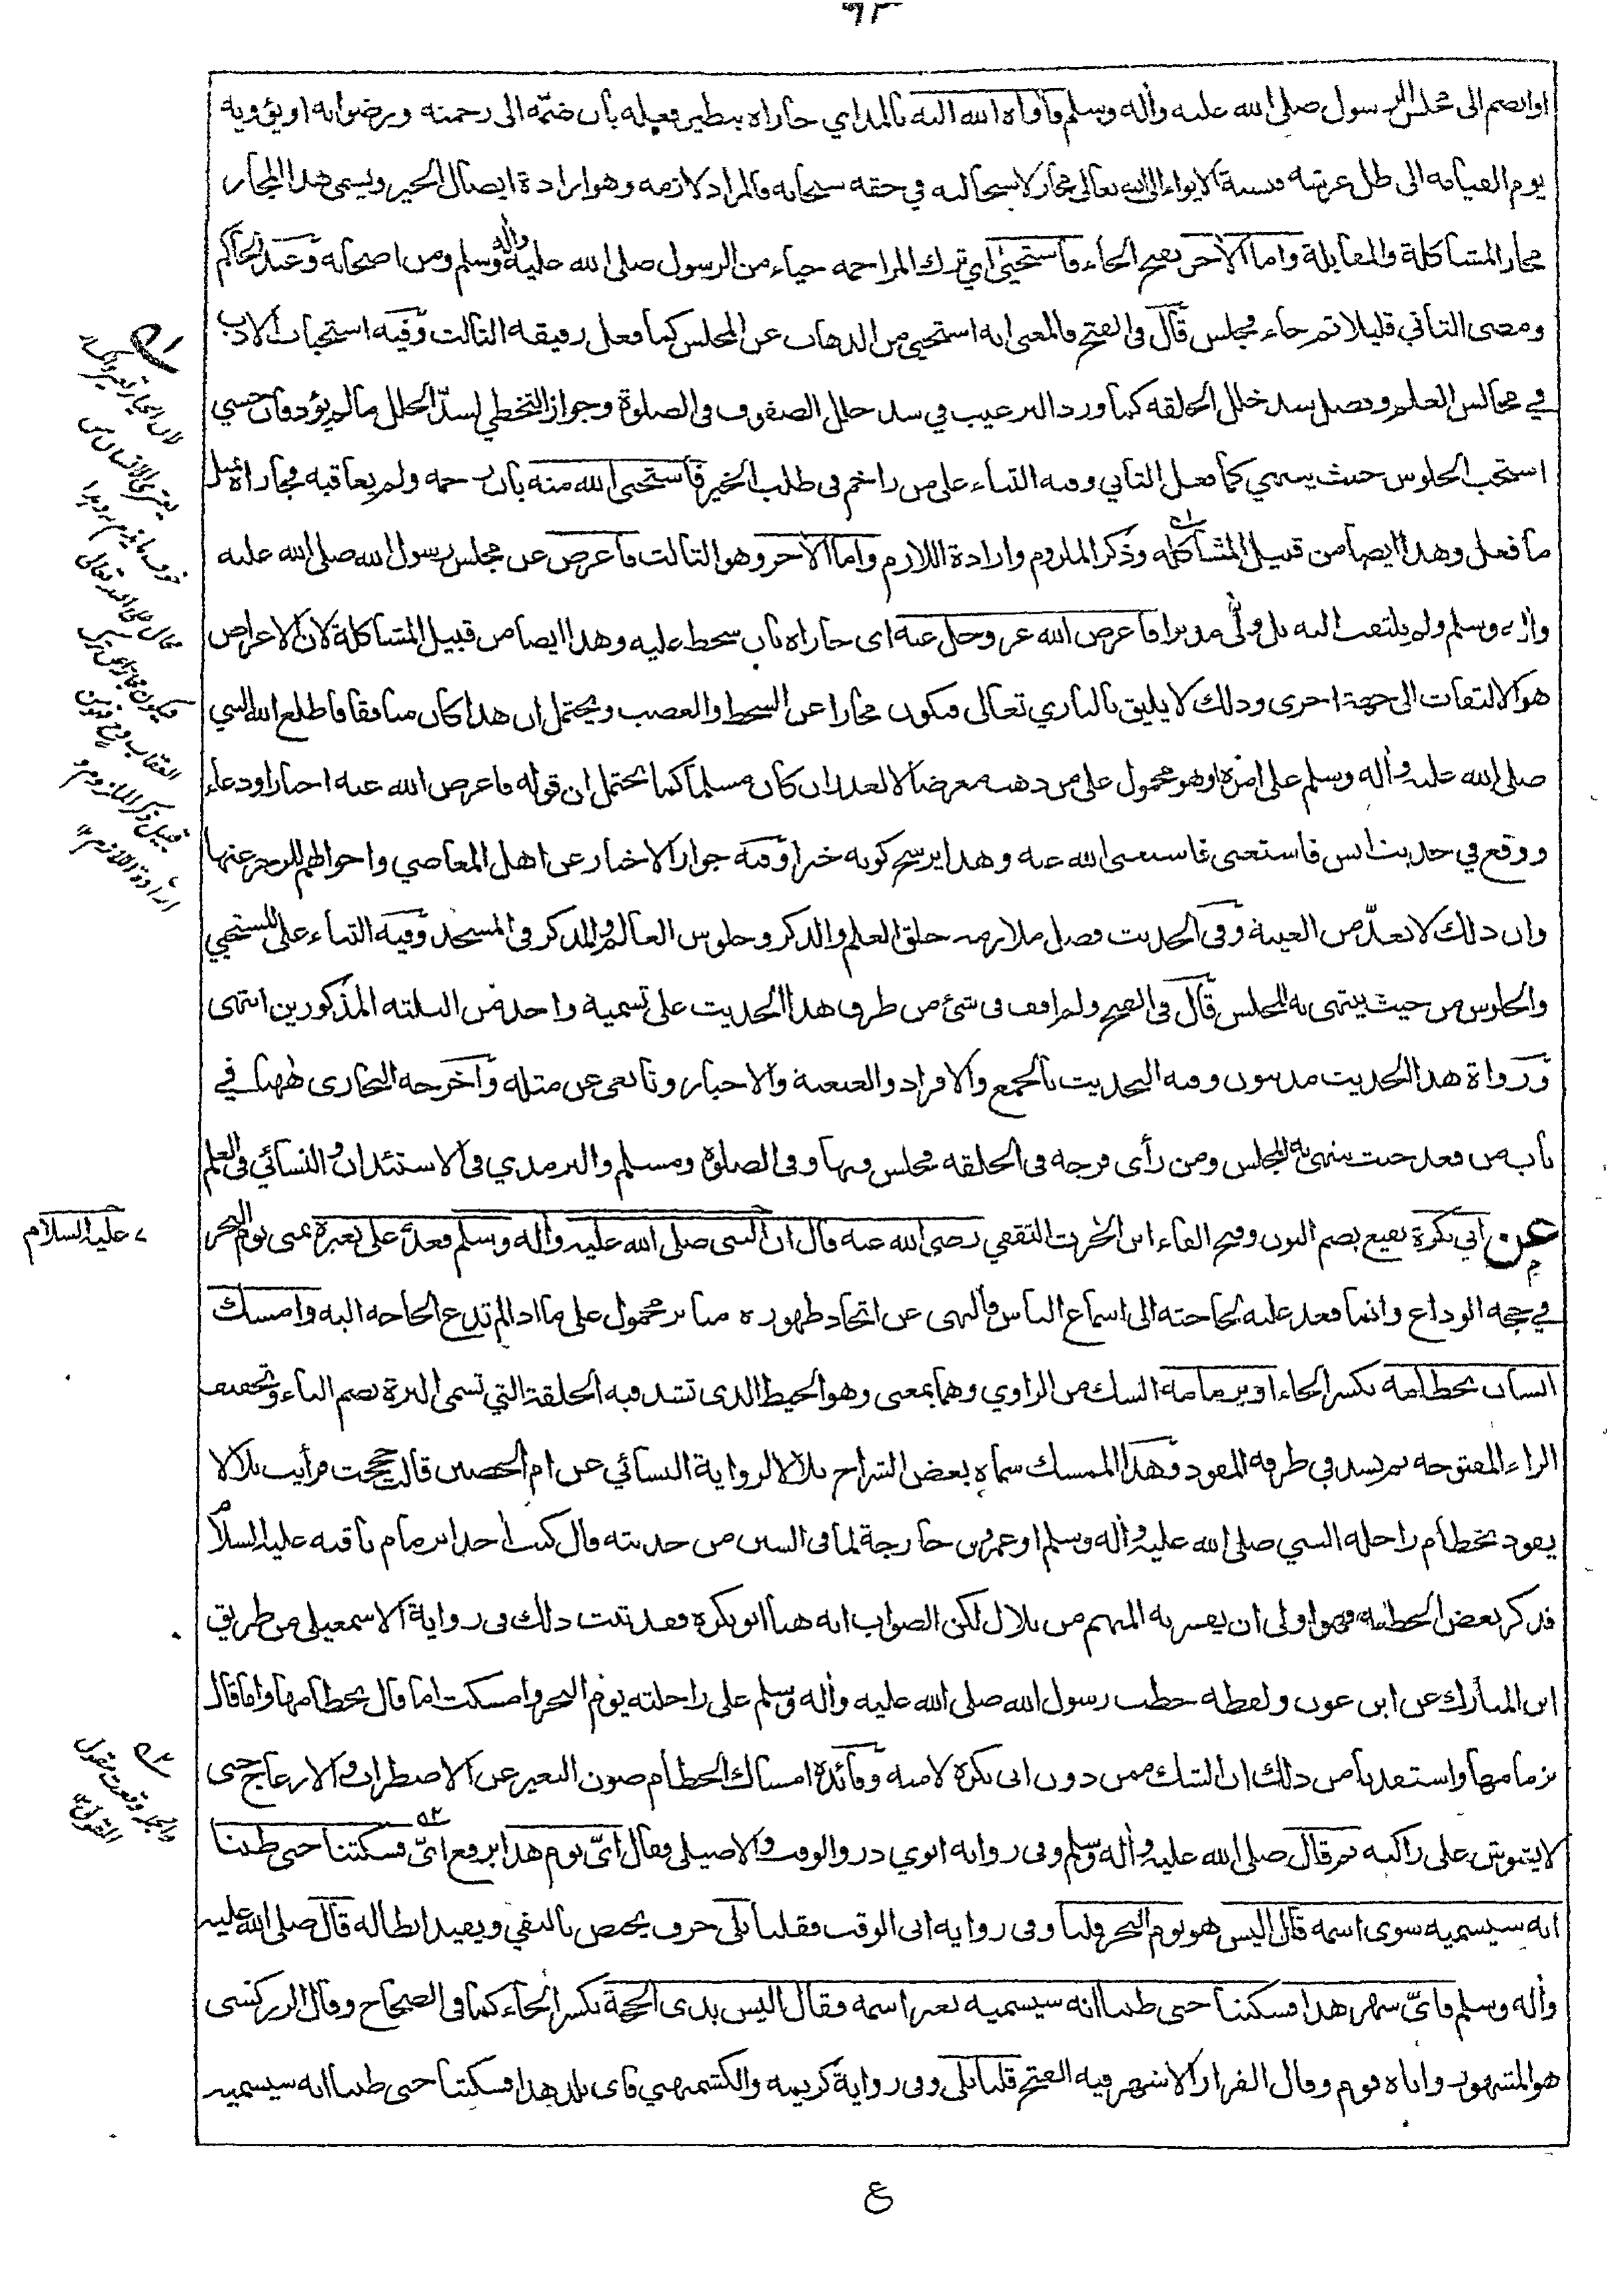 ٩٣
او انضم الى مجلس الرسول صلى الله عليه وأله وسلم فأواه الله اليه بالمد اي جازاه بنظير فعله بأن ضمّه الى رحمته ورضوانه او يؤويه
يوم القيامة الى ظل عرشه فنسبة الايواء الى الله تعالى مجاز لاستحالته في حقه سبحانه فالمراد لازمه وهو ارادة ايصال الخير ويسمى هذا المجاز
مجاز المشاكلة والمقابلة واما الأخر بفتح الخاء فأستحيى اي ترك المزاحمه حياء من الرسول صلى الله عليه وأله وسلم ومن اصحابه وعند الحاكم
ومضى الثاني قليلا ثم جاء فجلس قال في الفتح فالمعنى انه استحيى من الذهاب عن المجلس كما فعل رفيقه الثالث وفيه استحباب الادب
في مجالس العلم وفضل سد خلل الحلقه كما ورد الترغيب في سد خلل الصفوف في الصلوة وجواز التخطي لسدّ الخلل مالم يؤذ فأن خشي
استحب الجلوس حيث ينتهي كما فعل الثاني وفيه الثناء على من زاحم في طلب الخير فأستحيى الله منه بأن رحمه ولم يعاقبه فجازاه بمثل
ما فعل وهذا ايضا من قبيل المشاكله وذكر الملزوم وارادة اللازم واما الأخر وهو الثالث فأعرض عن مجلس رسول الله صلى الله عليه
واله وسلم ولم يلتفت اليه بل ولّى مدبرا فأعرض الله عز وجل عنه اى جازاه بأن سخط عليه وهذا ايضا من قبيل المشاكلة لان الاعراض
هو الالتفات الى جهة اخرى وذلك لا يليق بالباري تعالى فيكون مجازا عن السخط والغضب ويحتمل ان هذا كان منافقا فأطلع الله النبي
صلى الله عليه وأله وسلم على امره او هو محمول على من ذهب معرضا لا لعذر ان كان مسلما كما يحتمل ان قوله فأعرض الله عنه اخبارا ودعاء
ووقع في حديث انس فأستغنى فأستغنى الله عنه وهذا يرشح كونه خبرا وفيه جواز الاخبار عن اهل المعاصي واحوالهم للزجر عنها
وان ذلك لا يعدّ من الغيبة وفي الحديث فضل ملازمه حلق العلم والذكر وجلوس العالم والمذكر في المسجد وفيه الثناء على المستحيي
والجلوس من حيث ينتهى به المجلس قال في الفتح ولم اقف في شئ من طرق هذا الحديث على تسمية واحد من الثلثه المذكورين انتهى
ورواة هذا الحديث مدنيون وفيه التحديث بالجمع والافراد والعنعنة والاخبار وتابعي عن مثله وأخرجه البخارى ههنا في
باب من قعد حيث ينتهى به المجلس ومن رأى فرجه في الحلقه فجلس فيها وفي الصلوة ومسلم والترمذي في الاستئذان والنسائي في العلم
عن ابي بكرة نفيع بضم النون وفتح الفاء ابن الحرث الثقفي رضي الله عنه قال ان النبى صلى الله عليه وأله وسلم قعد على بعيره بمنى يوم النحر
في حجه الوداع وانما قعد عليه لحاجته الى اسماع الناس فالنهى عن اتخاذ ظهوره منابر محمول على ما اذا لم تدع الحاجه اليه وامسك
انسان بخطامه بكسر الخاء او بزمامه الشك من الراوي وهما بمعنى وهو الخيط الذى تشد فيه الحلقة التي تسمى البرة بضم الباء وتخفيف
الراء المفتوحه ثم يشد في طرفه المقود وهذا الممسك سماه بعض الشراح بلالا لرواية النسائي عن ام الحصين قالت حججت فرأيت بلالا
يقود بخطام راحله النبي صلى الله عليه وأله وسلم او عمرو بن خارجة لما في السنن من حديثه قال كنت أخذا بزمام ناقه عليه السلام
فذكر بعض الخطبه فهو اولى ان يفسر به المبهم من بلال لكن الصواب انه هنا ابو بكرة فقد ثبت ذلك فى رواية الاسمعيلى من طريق
ابن المبارك عن ابن عون ولفظه خطب رسول الله صلى الله عليه وأله وسلم على راحلته يوم النحر وامسكت اما قال بخطامها واما قال
بزمامها واستفدنا من ذلك ان الشك ممن دون ابى بكرة لا منه وفائدة امساك الخطام صون البعير عن الاضطراب والازعاج حتى
لا يشوش على راكبه ثم قال صلى الله عليه وأله وسلم وفى روايه ابوي ذر والوقت والاصيلى فقال أيّ يوم هذا برفع ايّ فسكتنا حتى ظننا
انه سيسميه سوى اسمه قال اليس هو يوم النحر قلنا وفى روايه ابى الوقت فقلنا بلى حرف يختص بالنفي ويفيد ابطاله قال صلى الله عليه
وأله وسلم فايّ شهر هذا فسكتنا حتى ظننا انه سيسميه بغير اسمه فقال اليس بذى الحجة بكسر الحاء كما فى الصحاح وقال الزركشى
هو المشهور واباه قوم وقال القزاز الاشهر فيه الفتح قلنا بلى وفى رواية كريمه والكشميهني فاى بلد هذا فسكتنا حتى ظننا انه سيسميه
ع
عليه السلام